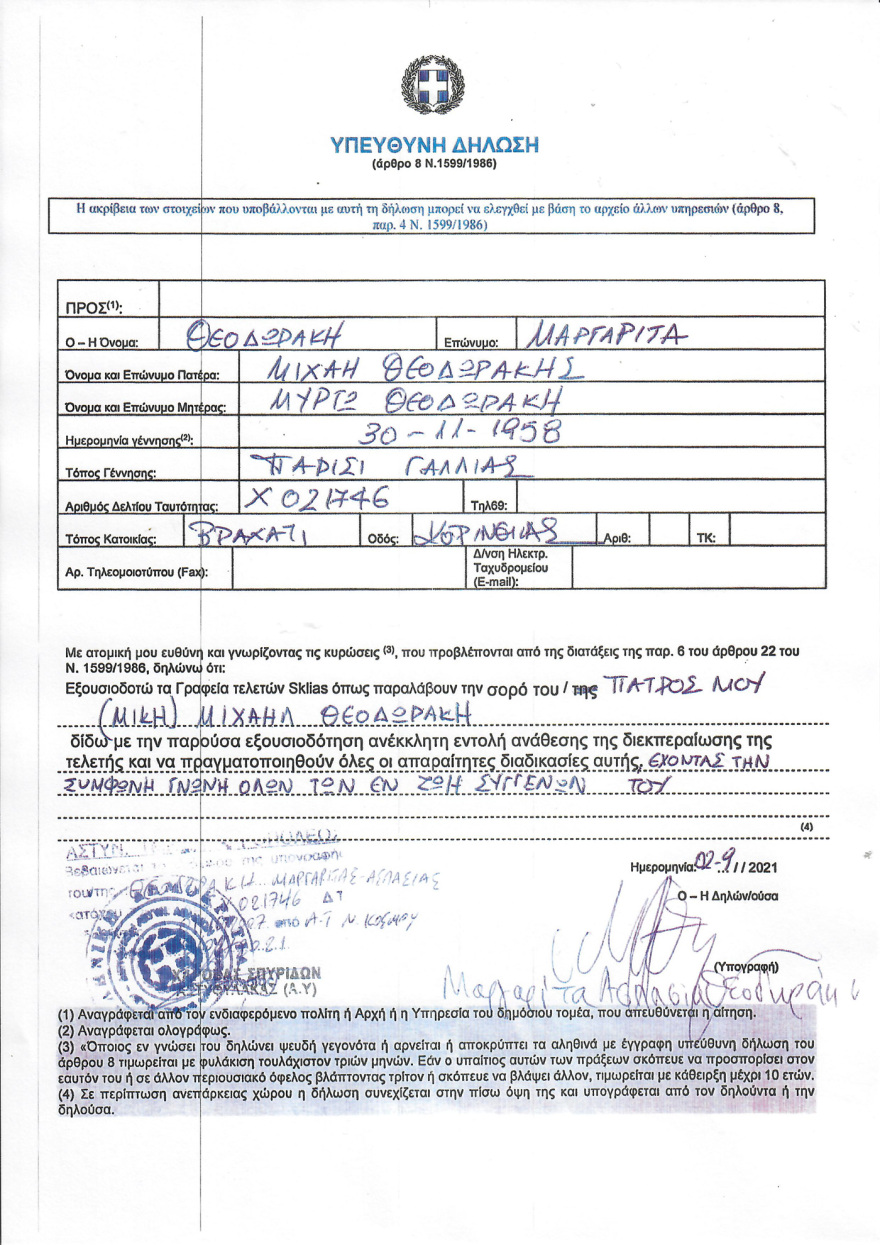 ΥΠΕΥΘΥΝΗ ΔΗΛΩΣΗ
(άρθρο 8 Ν.1599/1986)
Η ακρίβεια των στοιχείων που υποβάλλονται με αυτή τη δήλωση μπορεί να ελεγχθεί με βάση το αρχείο άλλων υπηρεσιών (άρθρο 8,
παρ. 4 Ν. 1599/1986)
ΠΡΟΣ(1):
Ο – Η Όνομα: ΘΕΟΔΩΡΑΚΗ Επώνυμο: ΜΑΡΓΑΡΙΤΑ
Όνομα και Επώνυμο Πατέρα: ΜΙΧΑΗ ΘΕΟΔΩΡΑΚΗΣ
Όνομα και Επώνυμο Μητέρας: ΜΥΡΤΩ ΘΕΟΔΩΡΑΚΗ
Ημερομηνία γέννησης(2): 30-11-1958
Τόπος Γέννησης: ΠΑΡΙΣΙ ΓΑΛΛΙΑΣ
Αριθμός Δελτίου Ταυτότητας: Χ 021746 Τηλ69:
Τόπος Κατοικίας: ΒΡΑΧΑΤΙ Οδός: ΚΟΡΙΝΘΙΑΣ Αριθ: ΤΚ:
Αρ. Τηλεομοιοτύπου (Fax): Δ/νση Ηλεκτρ. Ταχυδρομείου (E-mail):
Με ατομική μου ευθύνη και γνωρίζοντας τις κυρώσεις (3), που προβλέπονται από της διατάξεις της παρ. 6 του άρθρου 22 του
Ν. 1599/1986, δηλώνω ότι:
Εξουσιοδοτώ τα Γραφεία τελετών Sklias όπως παραλάβουν την σορό του / της ΠΑΤΡΟΣ ΜΟΥ
(ΜΙΚΗ) ΜΙΧΑΗΛ ΘΕΟΔΩΡΑΚΗ
δίδω με την παρούσα εξουσιοδότηση ανέκκλητη εντολή ανάθεσης της διεκπεραίωσης της
τελετής και να πραγματοποιηθούν όλες οι απαραίτητες διαδικασίες αυτής, ΕΧΟΝΤΑΣ ΤΗΝ
ΣΥΜΦΩΝΗ ΓΝΩΜΗ ΟΛΩΝ ΤΩΝ ΕΝ ΖΩΗ ΣΥΓΓΕΝΩΝ ΤΟΥ
(4)
ΑΣΤΥΝ.
Βεβαιώνεται υπογραφή
του/της ΘΕΟΔΩΡΑΚΗ ΜΑΡΓΑΡΙΤΑΣ-ΑΣΠΑΣΙΑΣ
Χ021746 ΔΤ
από Α.Τ Ν. ΚΟΣΜΟΥ
ΣΠΥΡΙΔΩΝ
ΑΣΤΥΦΥΛΑΚΑΣ (Α.Υ)
Ημερομηνία: 02-9 // 2021
Ο – Η Δηλών/ούσα
(Υπογραφή)
Μαργαρίτα Ασπασία Θεοδωράκη
(1) Αναγράφεται από τον ενδιαφερόμενο πολίτη ή Αρχή ή η Υπηρεσία του δημόσιου τομέα, που απευθύνεται η αίτηση.
(2) Αναγράφεται ολογράφως.
(3) «Όποιος εν γνώσει του δηλώνει ψευδή γεγονότα ή αρνείται ή αποκρύπτει τα αληθινά με έγγραφη υπεύθυνη δήλωση του
άρθρου 8 τιμωρείται με φυλάκιση τουλάχιστον τριών μηνών. Εάν ο υπαίτιος αυτών των πράξεων σκόπευε να προσπορίσει στον
εαυτόν του ή σε άλλον περιουσιακό όφελος βλάπτοντας τρίτον ή σκόπευε να βλάψει άλλον, τιμωρείται με κάθειρξη μέχρι 10 ετών.
(4) Σε περίπτωση ανεπάρκειας χώρου η δήλωση συνεχίζεται στην πίσω όψη της και υπογράφεται από τον δηλούντα ή την
δηλούσα.